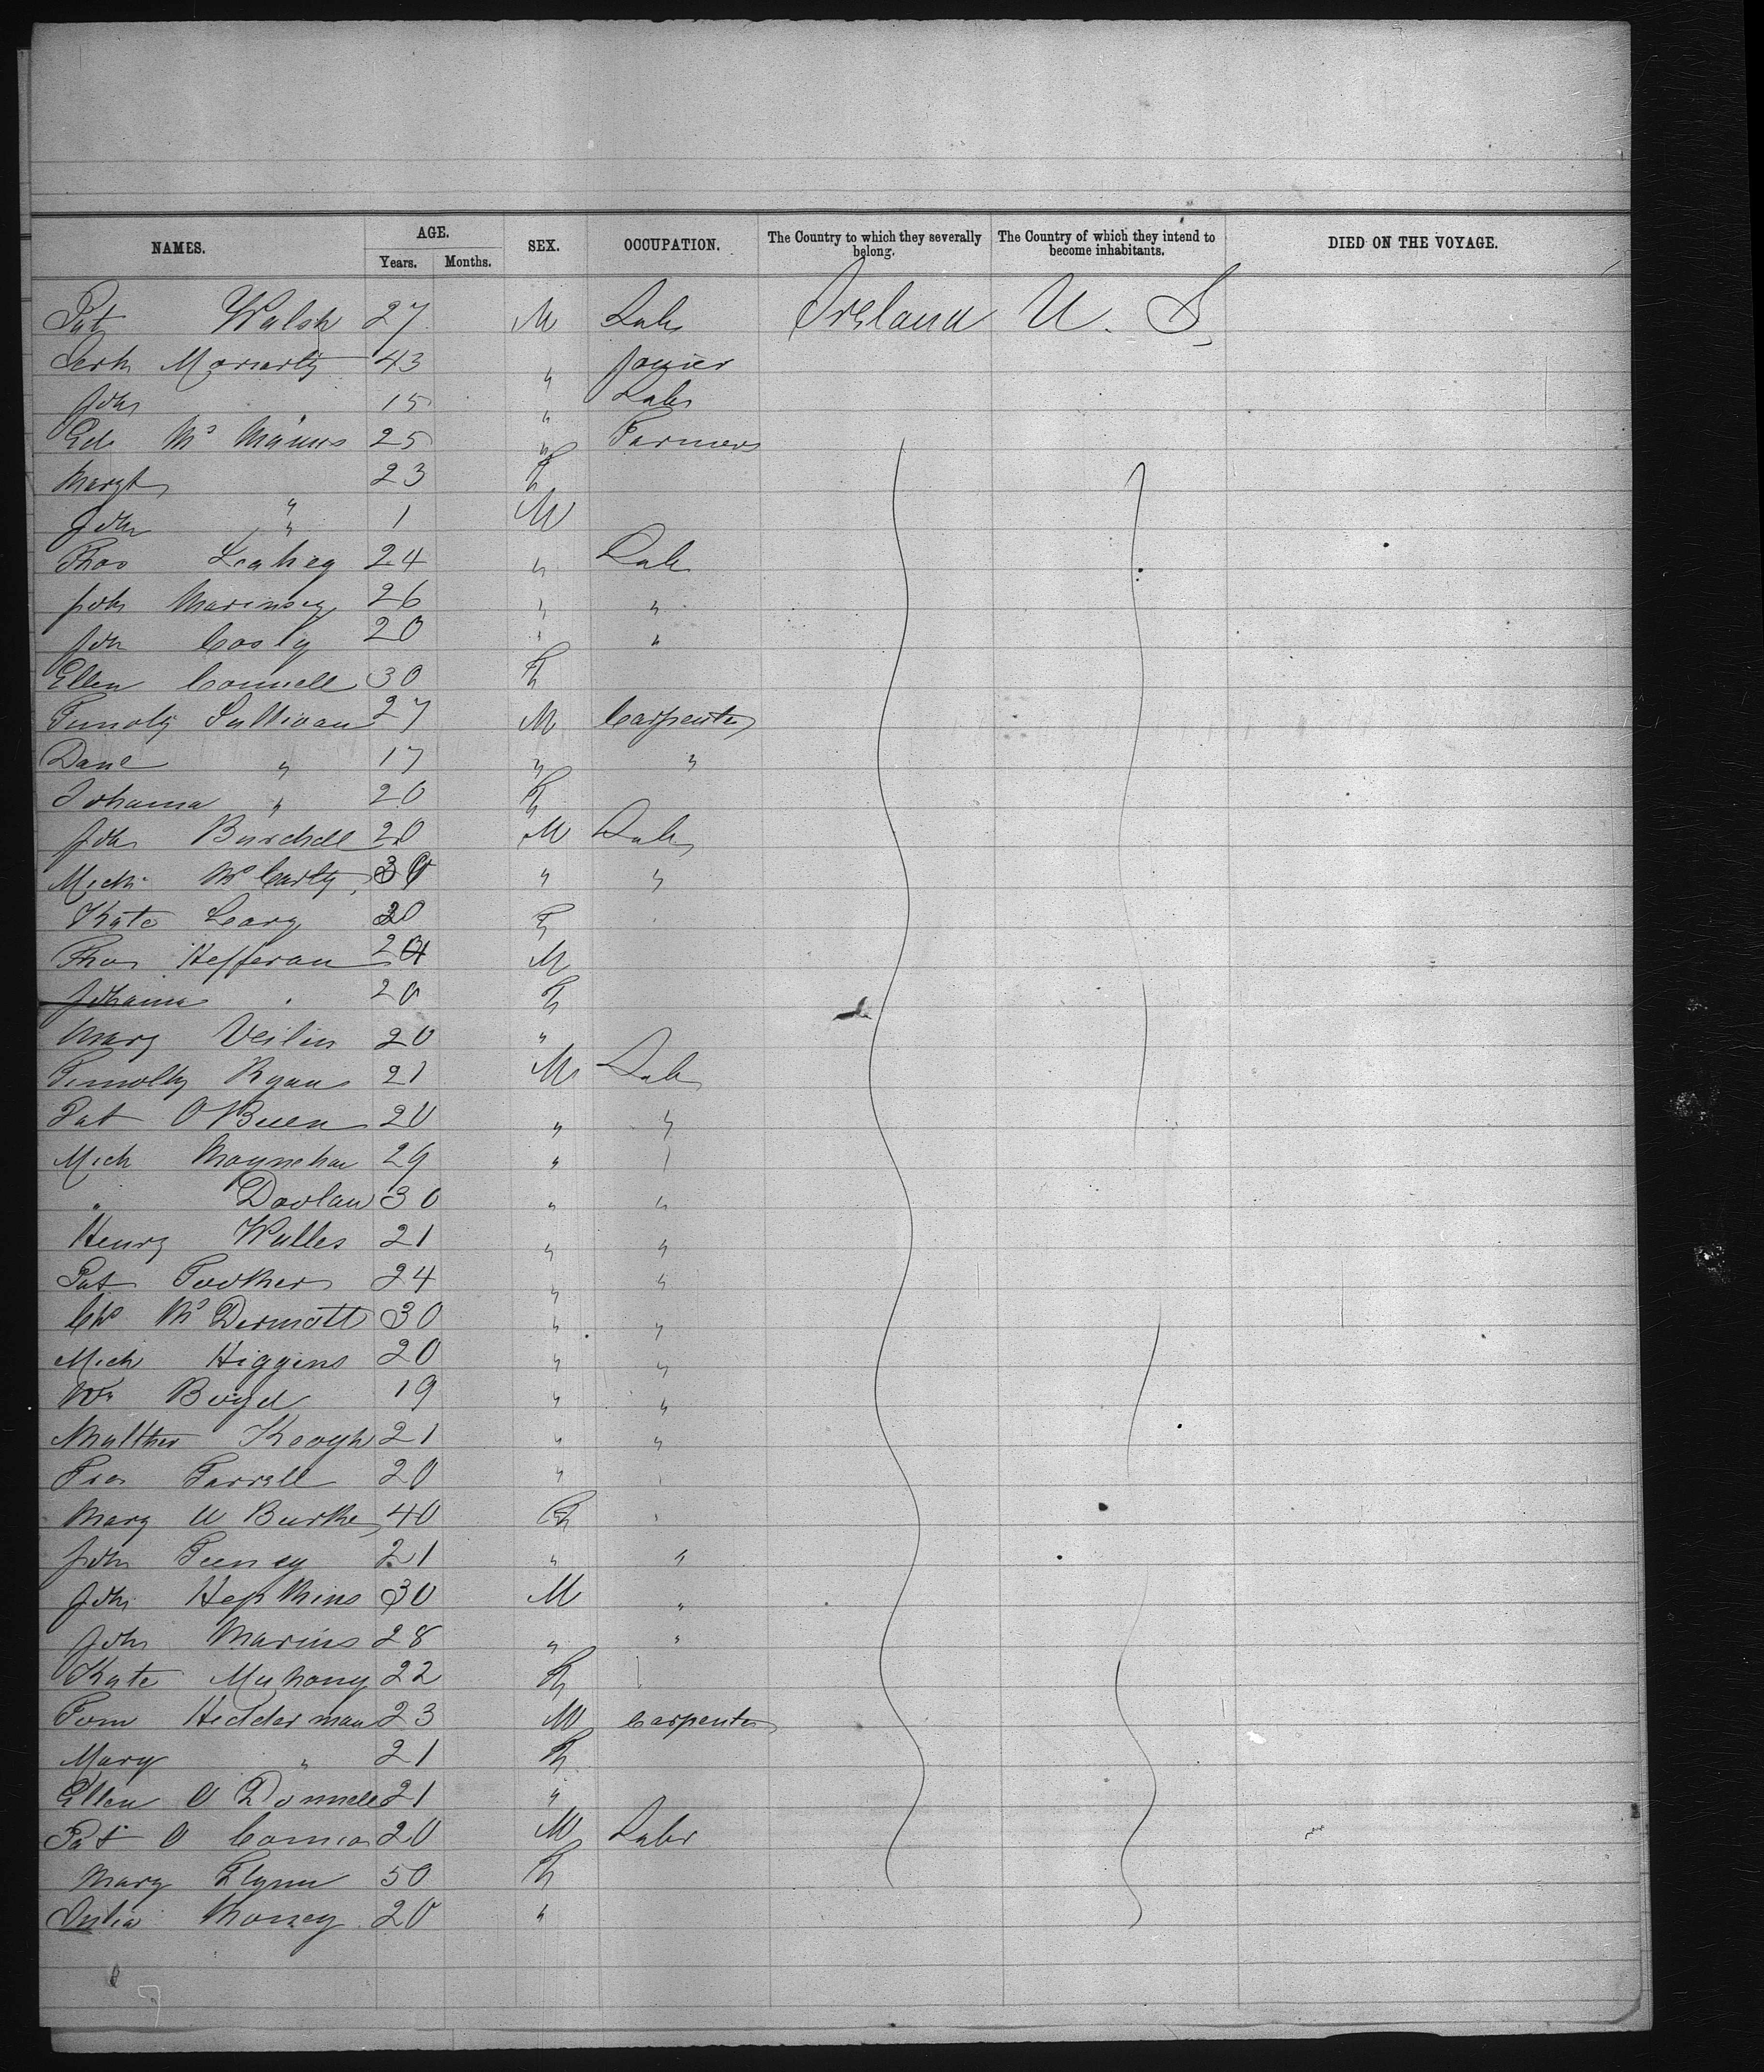 NAMES. AGE. SEX. OCCUPATION. The Country to which they severally belong. The Country of which they intend to become inhabitants. DIED ON THE VOYAGE.
Years. Months.
Pat Walsh 27 M Labr Ireland U. S.
Jerh Moriarty 43 " Joiner
John " 15 " Labr
Ed Mc Manus 25 " Farmer
Margt " 23 F
John " 1 M
Thos Leahey 24 " Lab
John 26 " "
John Cosly 20 " "
Ellen Connell 30 F
Timoty Sullivan 27 M Carpenter
Danl " 17 " "
Johanna " 20 F
John Burchell 20 M Labr
Mich Mc Carty 30 " "
Kate Leary 30 F
Thos Hefferan 24 M
Johanna " 20 F
Mary 20 "
Timothy Ryan 21 M Lab
Pat O Brien 20 " "
Mich Moynehan 29 " "
" Doolan 30 " "
Henry Walles 21 " "
Pat Tuoker 24 " "
Mc Dermott 30 " "
Mich Higgins 20 " "
Wm Boyd 19 " "
Matthew Keogh 21 " "
Farrell 20 " "
Mary Burke 40 F "
John Feeney 21 " "
John Hopkins 30 M "
John Marins 28 " "
Kate Mahony 22 F
Tom Hedderman 23 M Carpenter
Mary " 21 F
Ellen O Donnell 21 "
Pat O Connor 20 M Labr
Mary Flynn 50 F
Julia 20 "